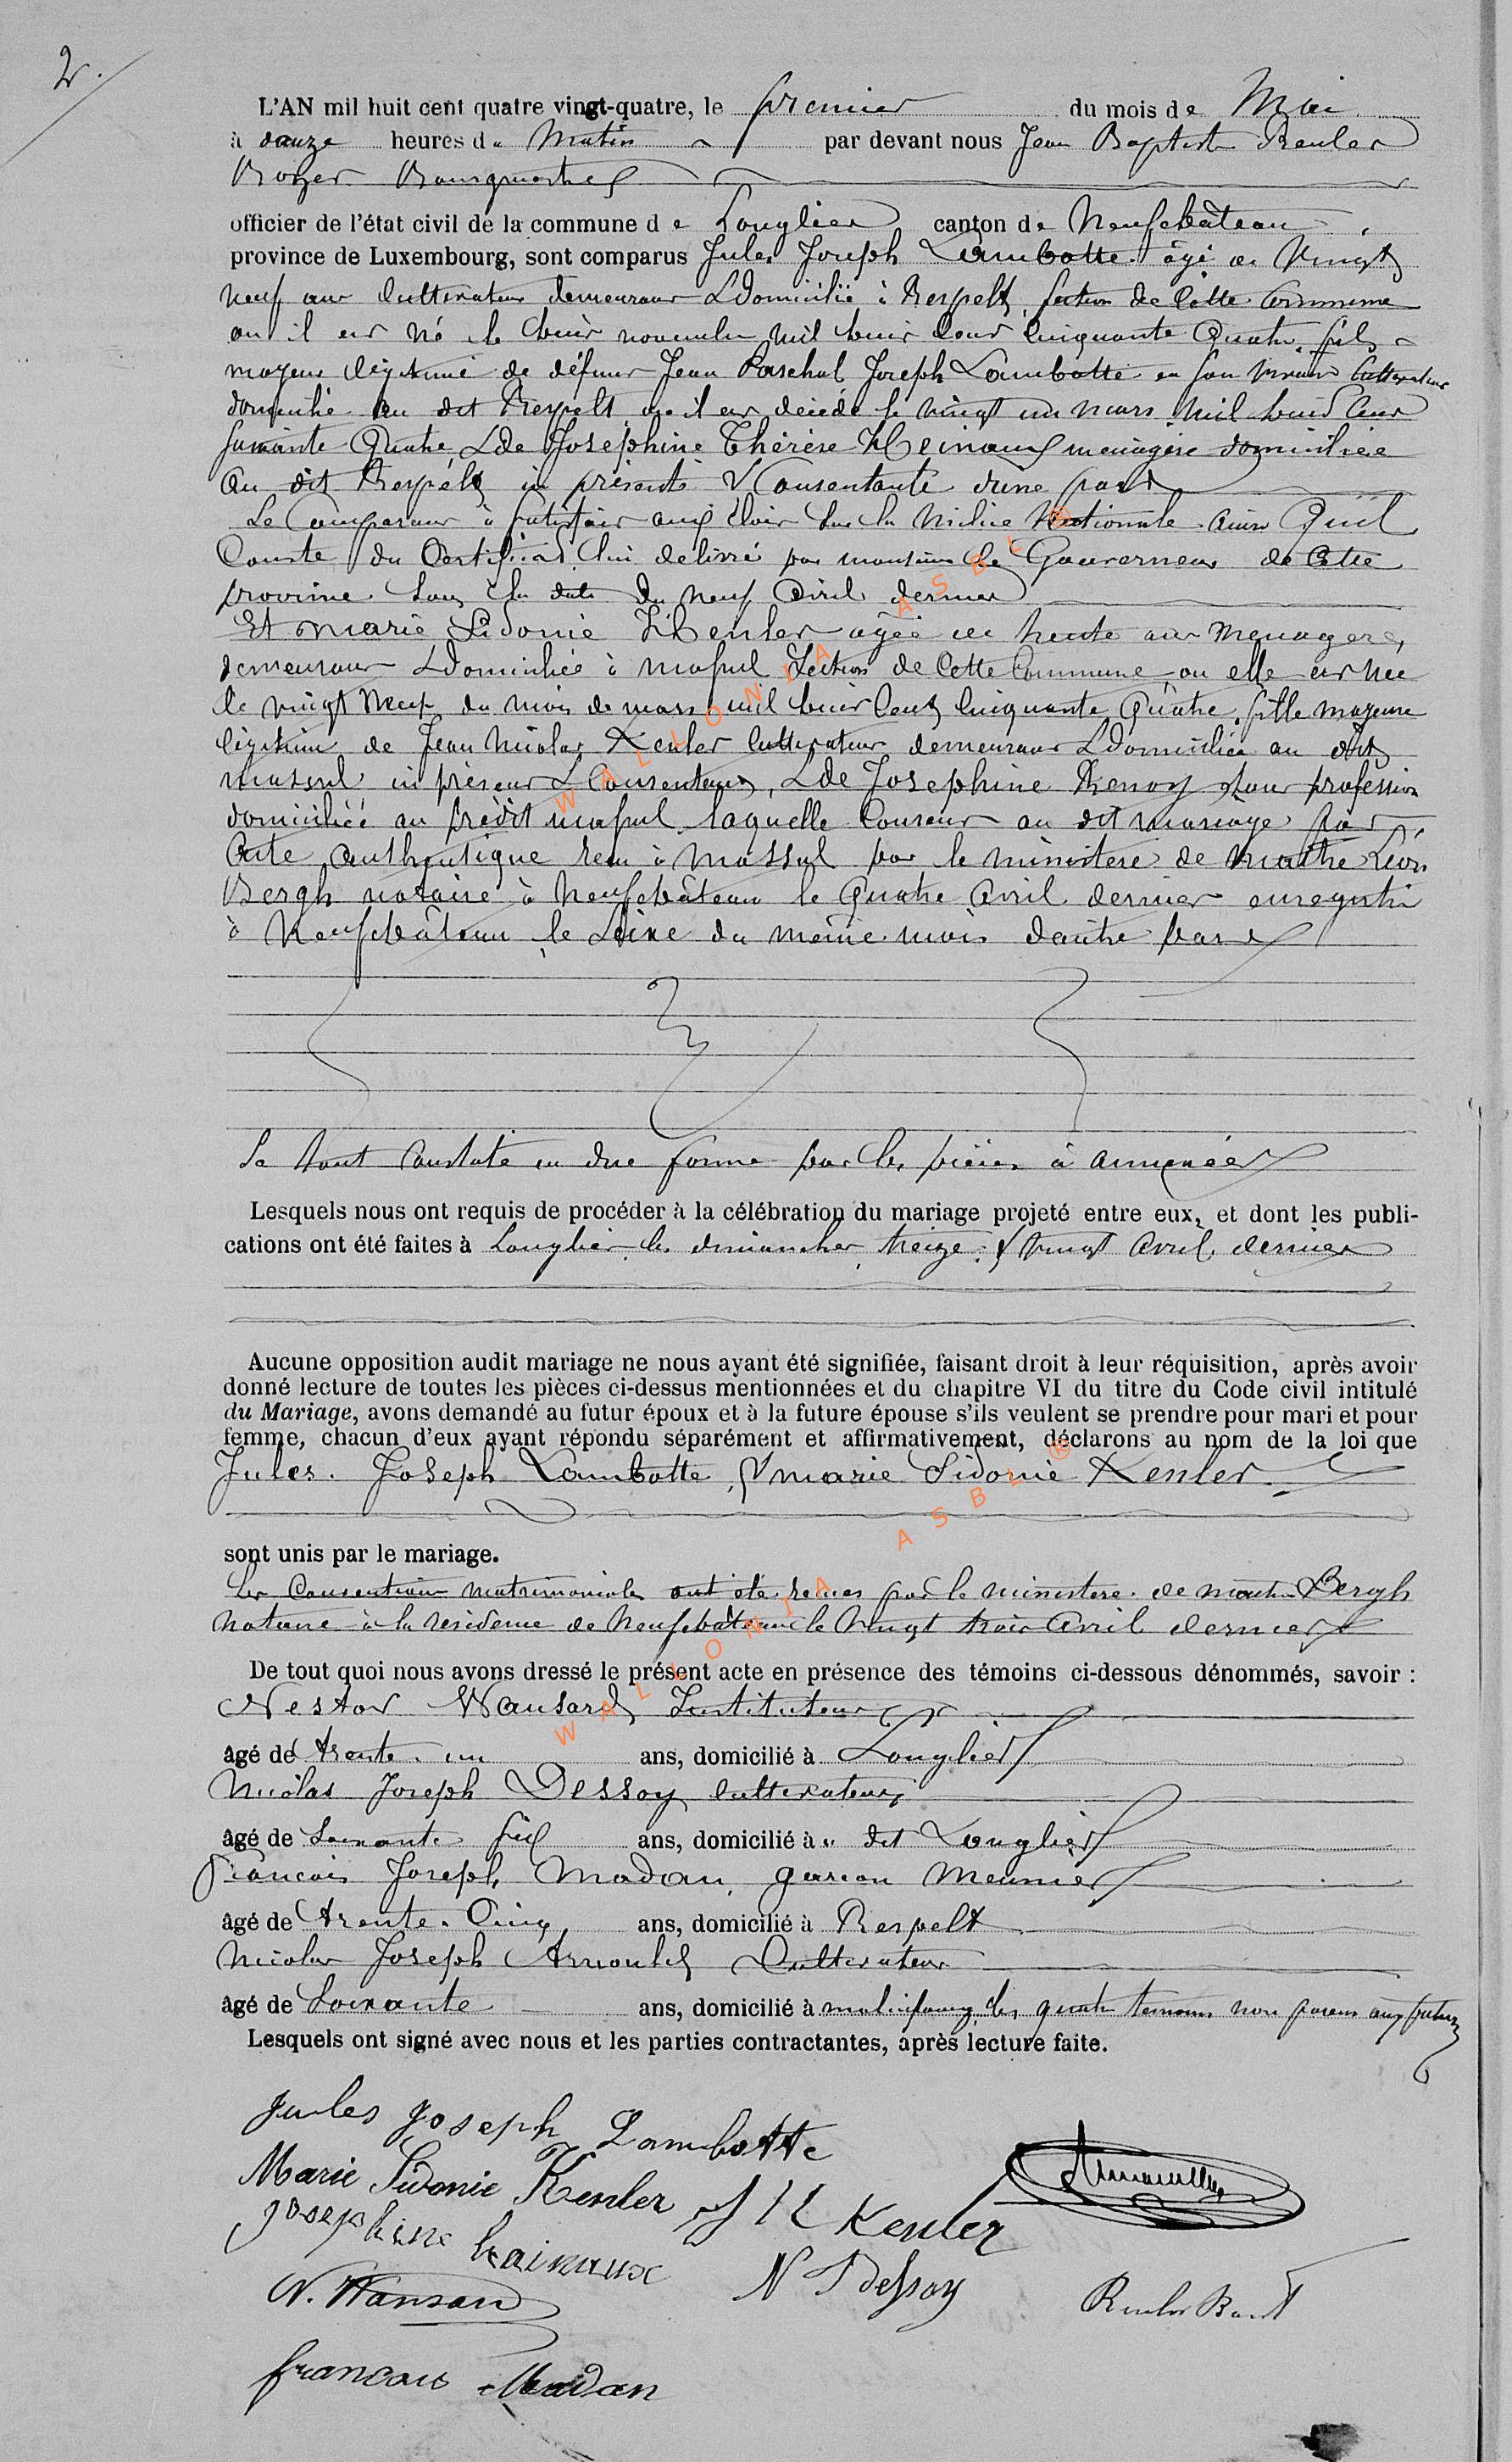 2.
L'AN mil huit cent quatre vingt-quatre, le premier du mois de Mai
à onze heures du Matin par devant nous Jean Baptiste Reuler
Rozer Bourgmestre
officier de l'état civil de la commune de Longlier canton de Neufchâteau
province de Luxembourg, sont comparus Jules Joseph Lambotte âgé de Vingt
neuf ans Cultivateur demeurant & domicilié à Respelt section de Cette Commune
ou il est né le huit novembre mil huit cent Cinquante Quatre, fils
majeur légitime de défunt Jean Paschal Joseph Lambotte en son vivant Cultivateur
domicilié au dit Respelt ou il est décédé le vingt un mars mil huit Cent
Soixante Quatre & de Joséphine Thérèse Heinaux menagère domiciliée
au dit Respelt ici présente & Consentante d'une part
Le Comparant à satisfait aux lois sur la Milice Nationale ainsi Qu'il
Conste du Certificat lui delivré par monsieur le Gouverneur de Cette
province sous la date du neuf Avril dernier
Et Marie Sidonie Kenler agée de trente ans Menagere,
demeurant & domiciliée à Massul Section de Cette Commune ou elle est née
le vingt Neuf du mois de mars mil huit Cent Cinquante Quatre, fille majeure
légitime de Jean Nicolas Kenler Cultivateur demeurant & domicilié au dit
Massul ici présent & Consentant, & de Josephine Renoy sans profession
domiciliée au prédit Massul laquelle Consent au dit mariage par
Acte authentique recu à Massul par le ministere de maitre Léon
Bergh notaire à Neufchâteau le Quatre Avril dernier enregistré
à Neufchâteau le Seize du même mois d'autre part
Le tout Constaté en due forme par les pièces à annexées
Lesquels nous ont requis de procéder à la célébration du mariage projeté entre eux, et dont les publi-
cations ont été faites à Longlier les dimanches treize & Vingt Avril dernier
Aucune opposition audit mariage ne nous ayant été signifiée, faisant droit à leur réquisition, après avoir
donné lecture de toutes les pièces ci-dessus mentionnées et du chapitre VI du titre du Code civil intitulé
du Mariage, avons demandé au futur époux et à la future épouse s'ils veulent se prendre pour mari et pour
femme, chacun d'eux ayant répondu séparément et affirmativement, déclarons au nom de la loi que
Jules Joseph Lambotte & Marie Sidonie Kenler
sont unis par le mariage.
Les Conventions matrimoniales ont été recues par le ministere de maitre Bergh
notaire à la résidence de Neufchâteau le Vingt trois Avril dernier
De tout quoi nous avons dressé le présent acte en présence des témoins ci-dessous dénommés, savoir :
Nestor Wansard Instituteur
âgé de trente un ans, domicilié à Longlier
Nicolas Joseph Dessoy Cultivateur
âgé de Soixante Six ans, domicilié à dit Longlier
Francois Joseph Madan garcon Meunier
âgé de trente Cinq ans, domicilié à Respelt
Nicolas Joseph Arnould Cultivateur
âgé de Soixante ans, domicilié à les quatre temoins non parens aux futurs
Lesquels ont signé avec nous et les parties contractantes, après lecture faite.
Jules Joseph Lambotte
Marie Sidonie Kenler J N Kenler
Josephine hainaux
N. Wansard N J Dessoy
francois Madan
WALLONIA ASBL ®
WALLONIA ASBL ®